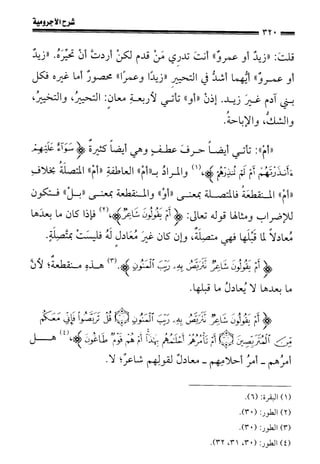 شرح الآجرومية
٣٢٠
قلت: «زيدٌ أو عمروٌ» أنت تدري مَنْ قدم لكنْ أردتَ أنْ تحيِّرَهُ. «زيدٌ
أو عمروٌ» أيُّهما أشدُّ في التحيير «زيدًا وعمرًا» محصورٌ أما غيره فكل
بني آدم غيرَ زيد. إذن «أو» تأتي لأربعةِ معانٍ: التحييرُ، والتخييرُ،
والشكُّ، والإباحةُ.
«أمْ»: تأتي أيضاً حرفَ عطفٍ وهي أيضاً كثيرةٌ ﴿سَوَآءٌ عَلَيْهِمْ
ءَأَنذَرْتَهُمْ أَمْ لَمْ تُنذِرْهُمْ﴾.(١) والمرادُ بـ«أمْ» العاطفةِ «أمْ» المتصلةُ بخلافِ
«أمْ» المنقطعَةُ فالمتصلةُ بمعنى «أوْ» والمنقطعة بمعنى «بلْ» فتكون
للإضراب ومثالها قوله تعالى: ﴿أَمْ يَقُولُونَ شَاعِرٌ﴾،(٢) فإذا كان ما بعدها
مُعادلاً لما قَبْلَها فهي متصلةٌ، وإن كان غيرَ مُعَادلٍ لَهُ فليسَتْ بمتَّصِلَةٍ.
﴿أَمْ يَقُولُونَ شَاعِرٌ نَّتَرَبَّصُ بِهِۦ رَيْبَ ٱلْمَنُونِ﴾.(٣) هذهِ منقطعةٌ؛ لأنَّ
ما بعدها لا يُعادلُ ما قبلها.
﴿أَمْ يَقُولُونَ شَاعِرٌ نَّتَرَبَّصُ بِهِۦ رَيْبَ ٱلْمَنُونِ ۝ قُلْ تَرَبَّصُوا۟ فَإِنِّى مَعَكُم
مِّنَ ٱلْمُتَرَبِّصِينَ ۝ أَمْ تَأْمُرُهُمْ أَحْلَـٰمُهُم بِهَـٰذَآ أَمْ هُمْ قَوْمٌ طَاغُونَ﴾،(٤) هل
أمرُهم - أمرُ أحلامِهم - معادلٌ لقولِهم شاعرٌ؛ لا.
(١) البقرة: (٦).
(٢) الطور: (٣٠).
(٣) الطور: (٣٠).
(٤) الطور: (٣٠، ٣١، ٣٢).